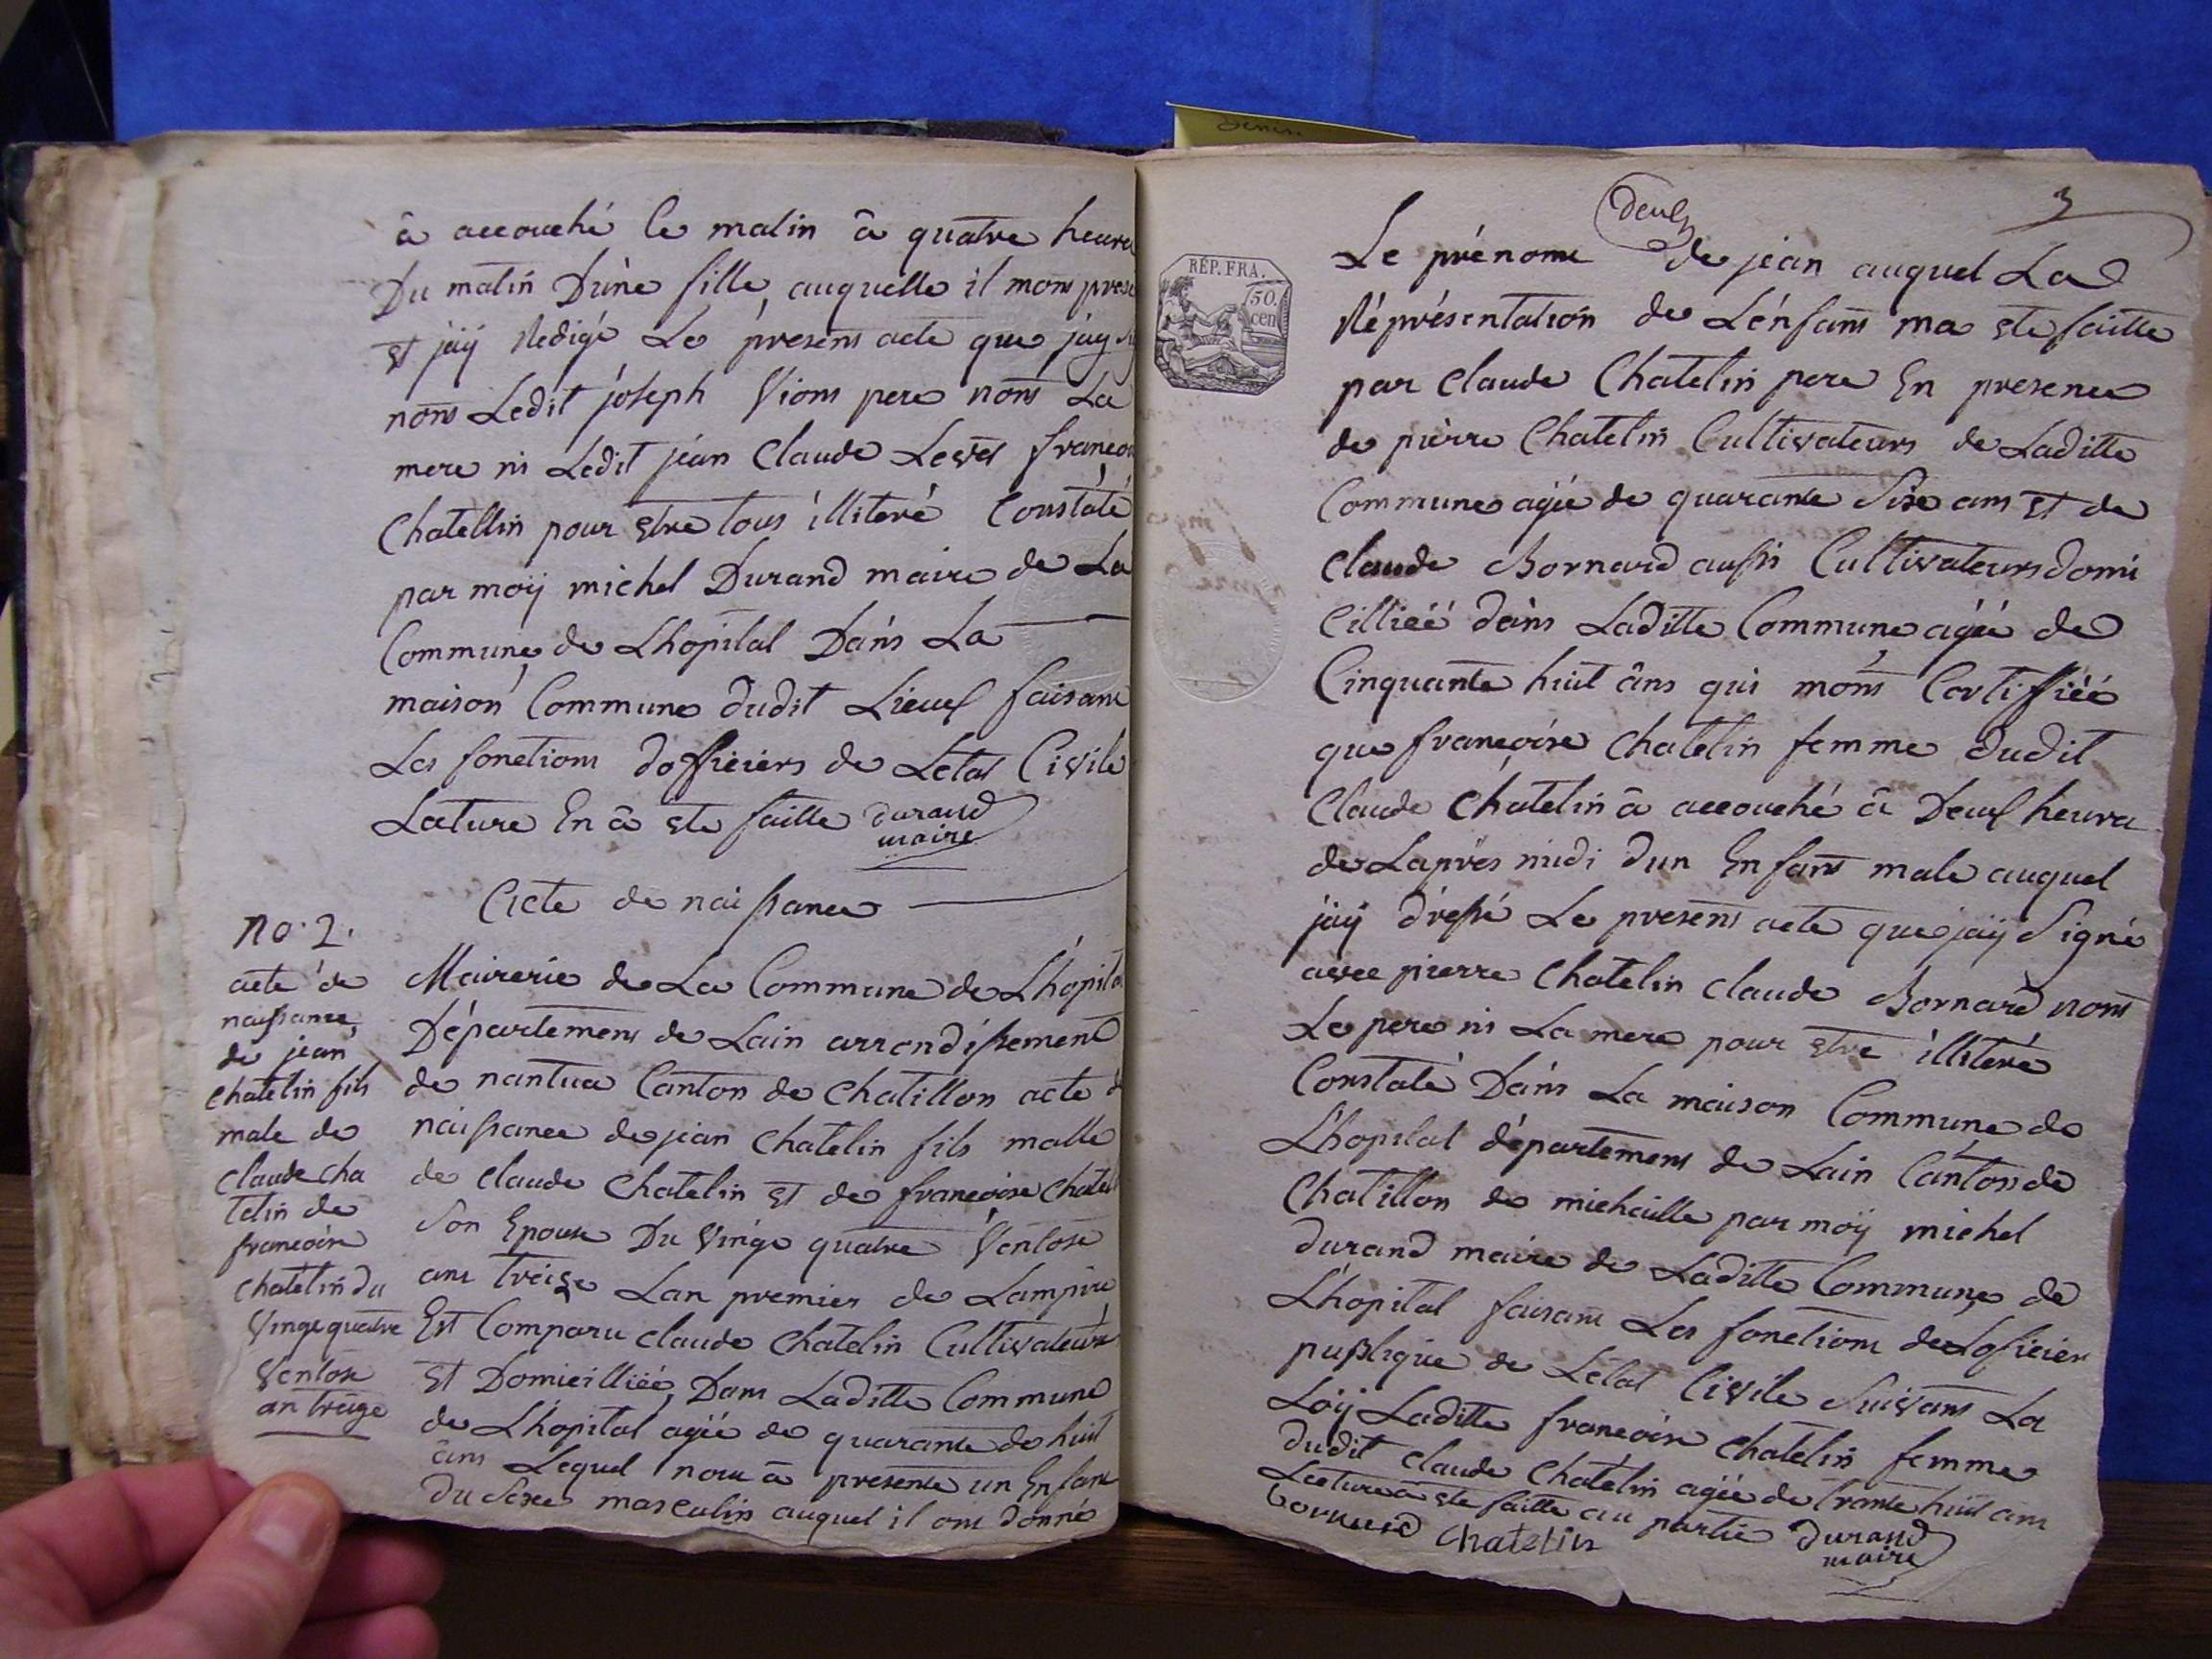 â accouché le matin â quatre heure
Du matin Dúne fille, auquelle il mons
Et jaÿ Redigé Le présens acte que jay
nons Ledit joseph Vions pere nons La
mere ni Ledit jéan Claude Françoi
Chatellin pour Etre tous illiteré Constaté
par moÿ michel Durand maire de La
Commune de Lhopital Dans La
maison Commune dudit Lieux faisans
Les fonctions dofficiers de Létat Civile
Lature En â été faitte durand
maire
Acte de naissance
no. 2.
acte de
naissance
de jean
chatelin fils
male de
Claude cha
telin de
francoise
chatelin du
Vingt quatre
Ventose
an treize
Mairerie de La Commune de Lhópital
Département de Lain arrondissement
de nantua Canton de Chatillon acte de
naissance de jean Chatelin fils malle
de claude Chatelin Et de francoise chatel
Son Epouse Du Vingt quatre Ventose
ans treize Lan premier de Lampire
Est Comparu claude Chatelin Cultivateur
Et Domicilliée Dans Laditte Commune
de Lhopital agée de quarante de huit
âns Lequel nous â presente un Enfant
Du Sexe masculin auquel il ons donné
deux
3
RÉP. FRA.
50.
cen
Le prénome de jéan auquel La
Réprésentation de Lénfans ma Ete faitte
par claude Chatelin pere En presence
de pierre Chatelin Cultivateurs de Laditte
Commune agée de quarante Sixe ans Et de
claude Bornard aussi Cultivateurs domi
cilliéé dans Laditte Commune agée de
Cinquante huit âns qui mons Certiffiéé
que francoise Chatelin femme dudit
Claude Chatelin â accouché â Deux heure
de Laprés midi dun Enfans male auquel
jaÿ dréssé Le presens acte que jaÿ Signé
avec pierre Chatelin claude Bornard nons
Le pere ni La mere pour Etre illiteré
Constaté Dans La maison Commune de
Lhopital département de Lain Canton de
Chatillon de michaille par moÿ michel
durand maire de Laditte Commune de
Lhopital faisans Les fonctions de Loficier
publique de Létat Civile Suivans La
Loÿ Laditte francoise Chatelin femme
dudit claude Chatelin agée de trante huit ans
Lecture â Ete faitte au partie durand
maire
bornard chatelin